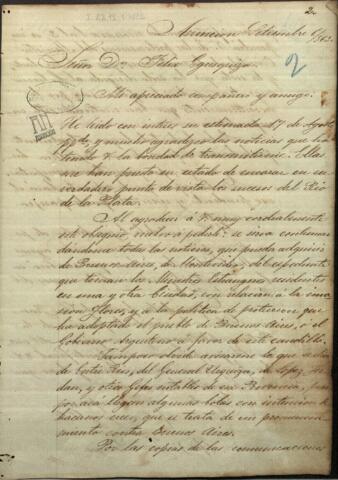 2.
Asuncion Setiembre 6/863.
Señor Dn Felix Egusquiza
2
Mi apreciado compañero y amigo:
He leido con interes su estimada 17 de Agosto
ppdo, y mucho agradezco las noticias que ha
tenido V. la bondad de transmitirme. Ellas
me han puesto en estado de encarar en su
verdadero punto de vista los sucesos del Rio
de la Plata.
Al agradecer á V. muy cordialmente
este obsequio, vuelvo á pedirle se sirva continuar
dandome todas las noticias, que pueda adquirir
de Buenos Aires, de Montevideo, del expediente
que toman los Ministros Estrangeros residentes
en una y otra Ciudad, con relacion á la inva-
sion Flores, y á la politica de proteccion que
ha adoptado el pueblo de Buenos Aires, ó el
Gobierno Argentino á favor de este caudillo.
Tampoco olvide avisarme lo que se dice
de Entre Rios, del General Urquiza, de Lopez Jor-
dan, y otros Gefes notables de esa Provincia, pues
por acá llegan algunas bolas con intencion de
hacernos creer, que se trata de un pronuncia-
miento contra Buenos Aires.
Por las copias de las comunicaciones